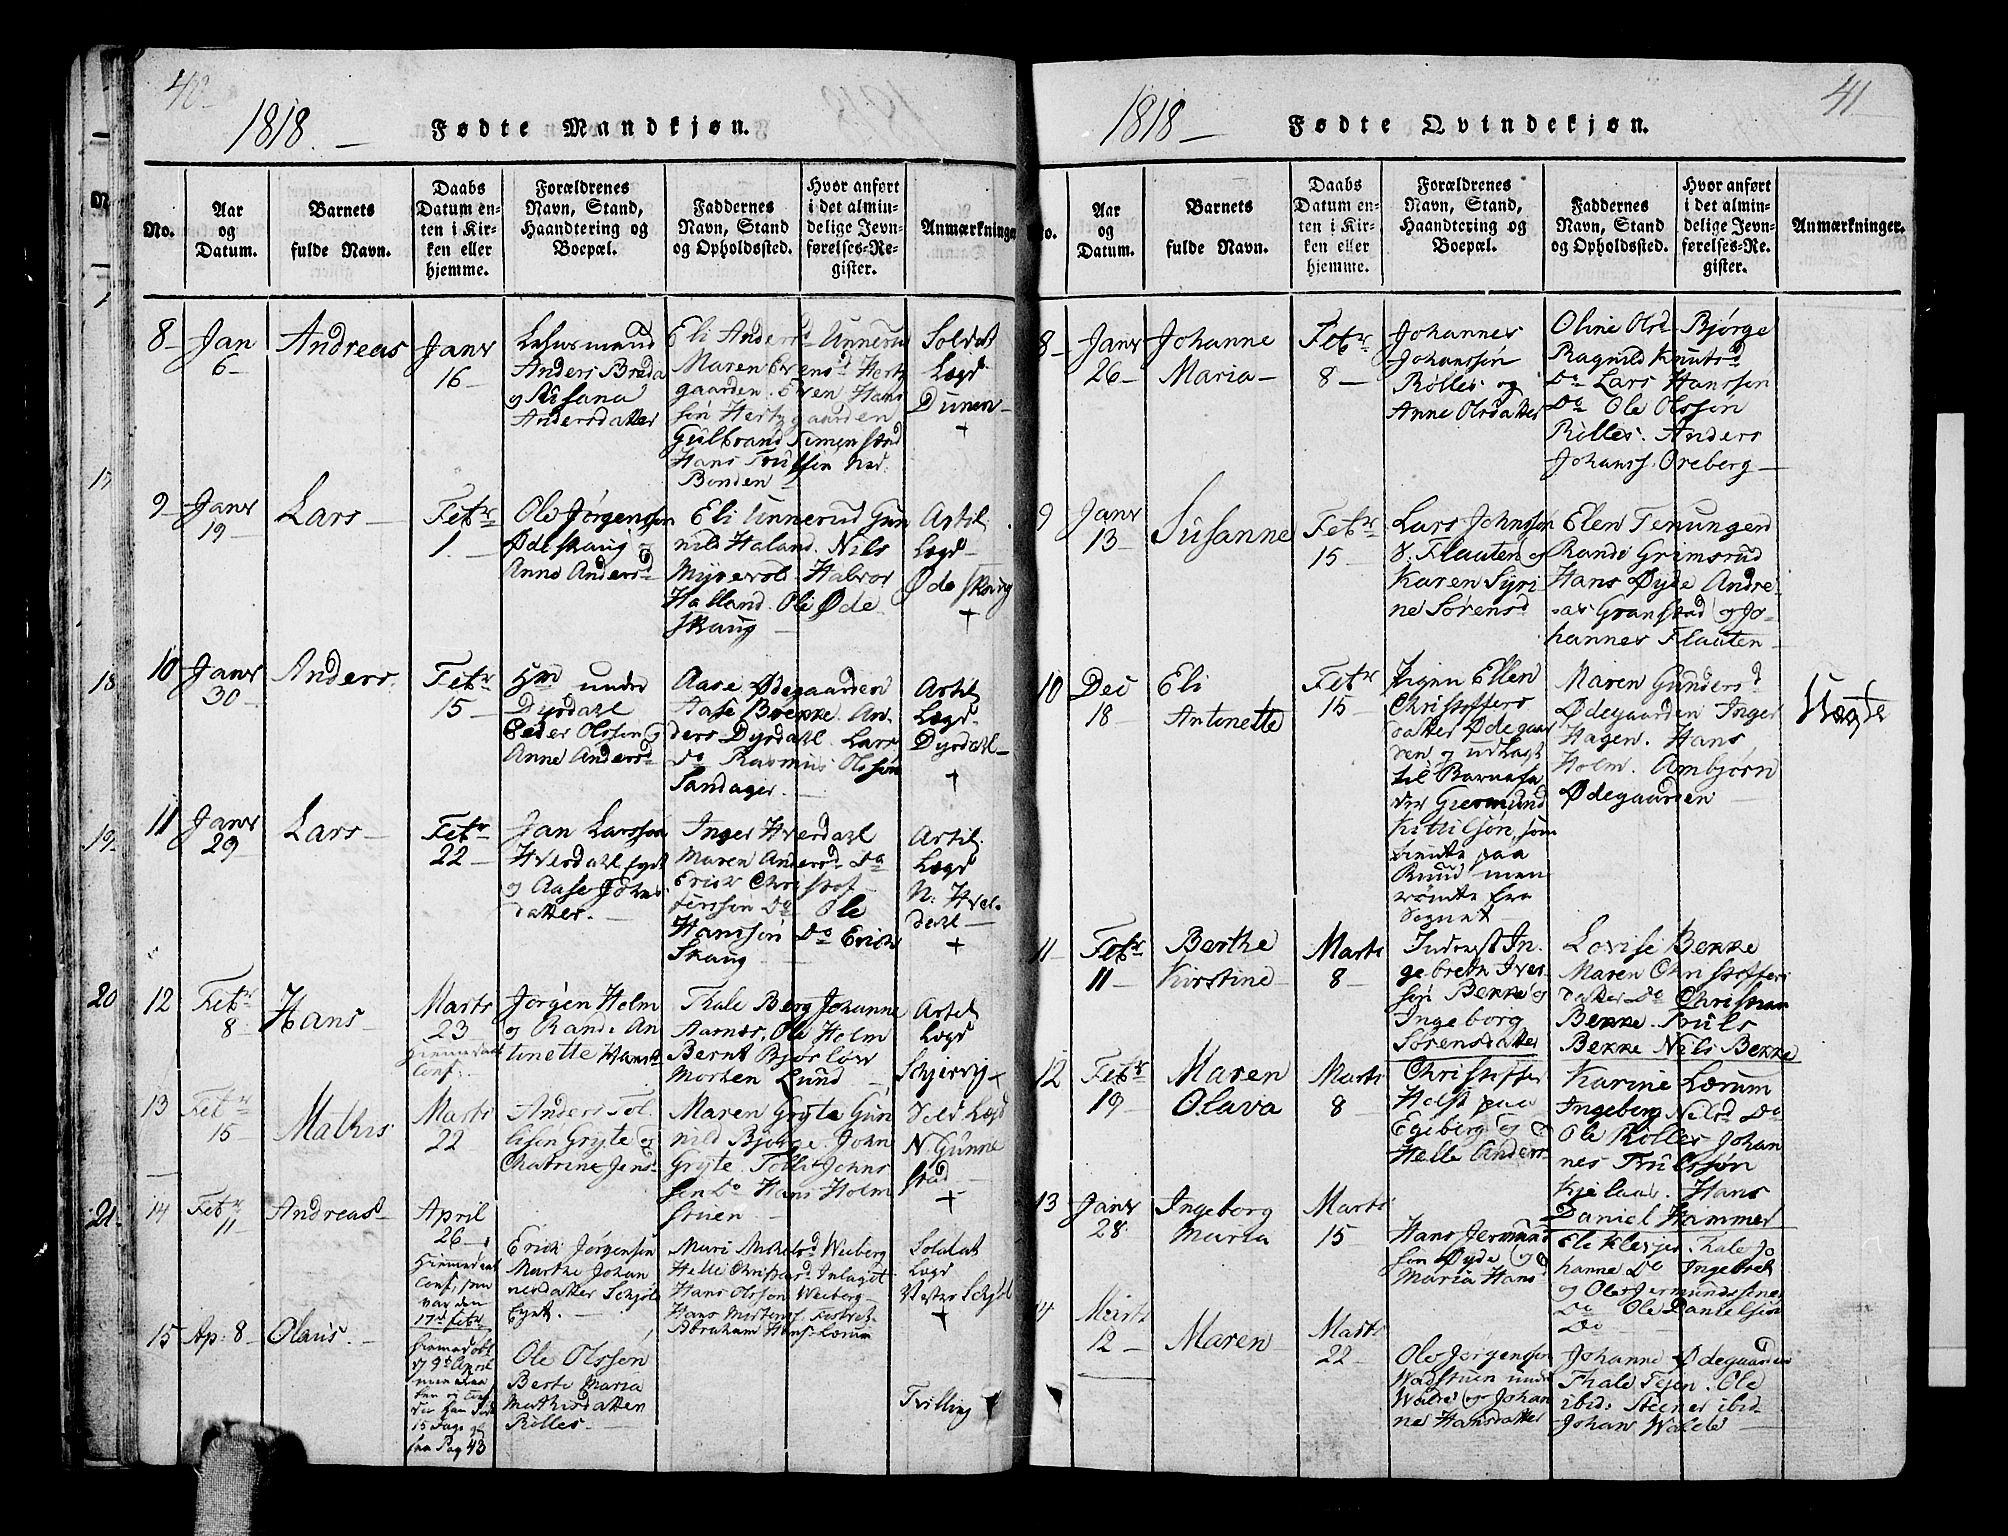 40
1818. —
Fødte Mandkjøn.
No.
Aar
og
Datum.
Barnets
fulde Navn.
Daabs
Datum en-
ten i Kir-
ken eller
hjemme.
Forældrenes
Navn, Stand,
Haandtering og
Boepæl.
Faddernes
Navn, Stand
og Opholdssted.
Hvor anført
i det almin-
delige Jevn-
førelses-Re-
gister.
Anmærkninger
8
Jan
6
Andreas
Janr
16
Anders Breda
og
Andersdatter
Eli Andersd Unnerud
Maren Evensd Hertz
gaarden. Even Hans
søn Hertzgaarden
Gulbrand Simenstad
Bonden
Soldat
Lægd
+
9
Janr
19
Lars
Febr
1.
Ole Jørgensen
Ødeskaug og
Anne Andersd
Eli Unnerud Gun
nild Haland. Nils
Myrevold Halvor
Halland. Ole Øde
skaug
Artil
Lægd
Ødeskaug
+
10
Janr
30
Anders.
Febr
15
Hm under
Dyrdahl
Peder Olssen og
Anne Andersd
Aase Ødegaarden
Aase Boekke. An-
ders Dyrdahl. Lars
Do Rasmus Olssøn
Sandager.
Artil
Lægd
Dyrdahl
+
11
Janr
29
Lars
Febr
22
Jan Larssøn
Hverdahl
og Aase Johns
datter.
Inger Hverdahl
Maren Andersd Do
Erick Christof
ferssøn Do Ole
Hanssøn Do Erich
Skaug
Artil
Lægd
N: Hver
dahl
+
12
Febr
8
Hans
Marts
23
Hiemmedøbt
Conf.
Jørgen Holm
og Rande An
tonette Hansd
Thale Berg Johanne
Aarnes. Ole Holm
Bernt Bjørløw
Morten Lund
Artil
Lægd
+
13
Febr
15
Mathis
Marts
22
Anders Tol
lissøn Gryte og
Chatrine Jensd
Maren Gryte Gun
nild Bjørge John
Gryte. Tolli Johns
søn Do Hans Holm
stuen
Lægd
N. Gunne
stad
+
14
Febr
11
Andreas
April
26
var den
17d febr
Erick Jørgensen
Marthe Johan
nesdatter
Eyet.
Mari Michelsd Weeberg
Helle Christensd Inlaget
Hans Olssøn Weeberg
Abraham Hans Lærum
Soldat
Lægd
+
15
Ap: 8
Olaus.
9d April
15
Pag 43
Ole Olssen
Berte Maria
Mathisdatter
Rolles
Tvilling
41
1818 —
Fødte Qvindekjøn.
No.
Aar
og
Datum.
Barnets
fulde Navn.
Daabs
Datum en-
ten i Kir-
ken eller
hjemme.
Forældrenes
Navn, Stand,
Haandtering og
Boepæl.
Faddernes
Navn, Stand
og Opholdssted.
Hvor anført
i det almin-
delige Jevn-
førelses-Re-
gister.
Anmærkninger.
8
Janr
26
Johanne
Maria
Febr
8
Johannes
Johanssøn
Rolles og
Anne Olsdatter
Oline Olsd Bjørge
Ragnild Knutsd
Do Lars Hanssøn
Do Ole Olssøn
Rolles. Anders
Johanss. Oreberg
9
Janr
13
Susanne
Febr
15
Lars Johnssøn
Flauten og
Karen Syri
ne Sørensd
Elen Tenungen
Rande Grimsrud
Hans Øyke Andre
as Granstad og Jo-
hannes Flauten
10
Dec
18
Eli
Antonette
Febr
15
Pigen Ellen
Christoffers
datter Ødegaar
den og udlagt
til Barnefa
der Giermund
Kittilsøn, som
tiente paa
Ruud men
rømte fra
Sognet
Maren Gundersd
Ødegaarden Inger
Hagen. Hans
Holm. Ambjørn
Ødegaarden
Uægte
11
Febr
11
Berthe
Kirstine
Marts
8
Inderst In-
gebreth Iver-
søn Bekke og
Ingeborg
Sørensdatter
Lovise Bekke
Maren Christoffers
datter Do Christian
Bekke. Truls
Bekke Nils Bekke
12
Febr
19
Maren
Olava
Marts
8
Christoffer
Holst paa
Egeberg og
Helle Andersd
Karine Lærum
Ingeborg Nilsd Do
Ole Rolles Johan
nes Trulssøn
Kjelaas. Hans
Daniel Hammer
13
Janr
28
Ingeborg
Maria
Marts
15
Hans Jermund
søn Øyde og
Maria Hansd
Thale Jo
hanne Do Ingebret
og Ole Jermundssønner
Do Ole Danielsøn
Do
14
Marts
12
Maren
Marts
22
Ole Jørgenssen
under
Walde og Johan
ne Hansdatter
Johanne Ødegaarden
Thale Tejen. Ole
ibid: Steener ibid
Johan Walde